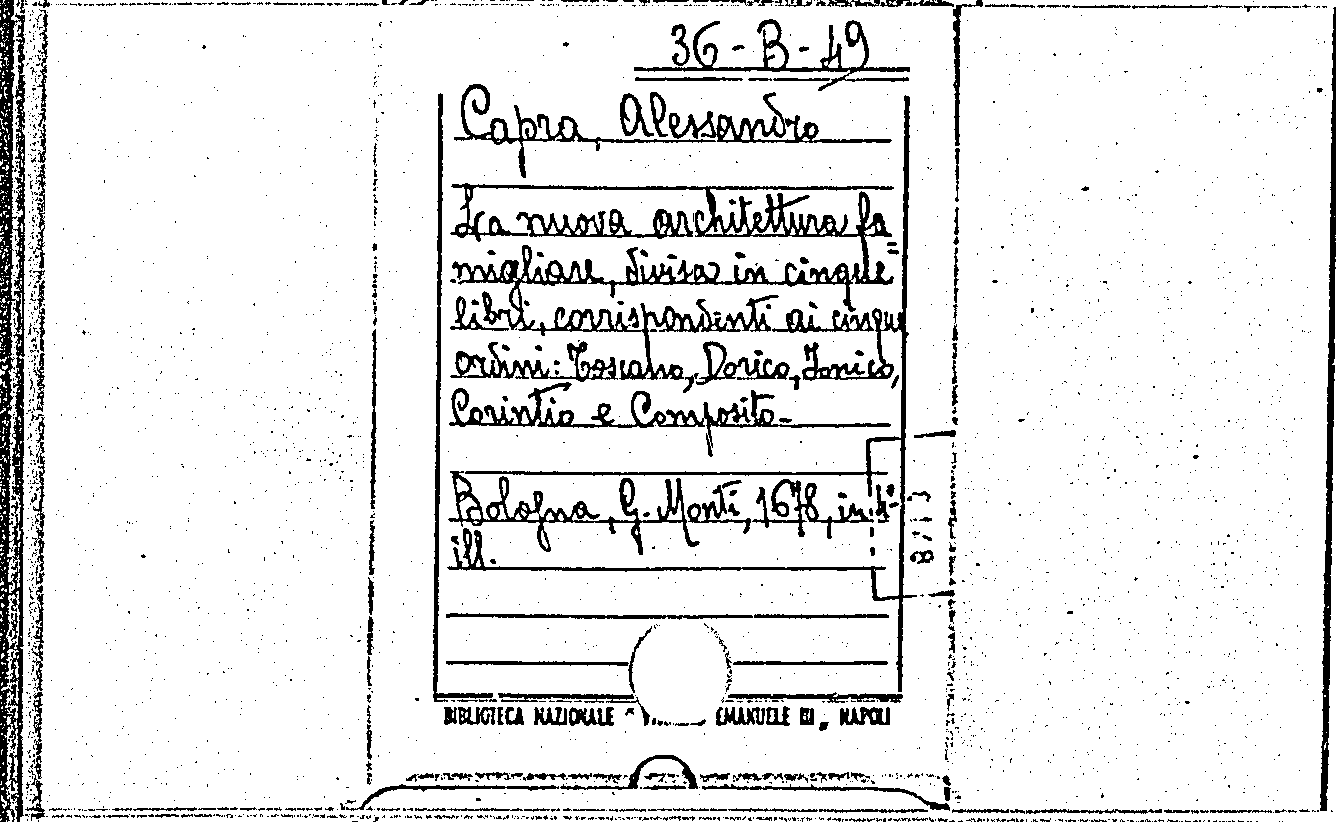 36-B-49
Capra, Alessandro
La nuova architettura fa=
migliare, divisa in cinque
libri, corrispondenti ai cinque
ordini: Toscano, Dorico, Jonico,
Corintio e Composito-
Bologna, G. Monti, 1678, in 4°-
ill.
BIBLIOTECA NAZIONALE " EMANUELE III „ NAPOLI